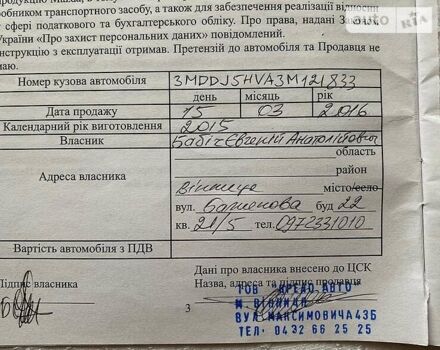 продукцію Мазда, а
обником транспортного засобу, а також для забезпечення реалізації відносин
в сфері податкового та бухгалтерського обліку. Про права, надані
України «Про захист персональних даних» повідомлений.
Інструкцію з експлуатації отримав. Претензій до автомобіля та Продавця не
маю.
AUTO RIA .com
Номер кузова автомобіля 3MDDJ5HVA3M121833
день місяць рік
Дата продажу 15 03 2016
Календарний рік виготовлення 2015
Власник Бабіч Євгеній Анатолійович
область
район
Адреса власника Вінниця місто/село
вул. Баженова буд 22
кв. 21/5 тел. 0972331010
Вартість автомобіля з ПДВ
Дані про власника внесено до ЦСК
Підпис власника Назва, адреса та підпис продавця
3
ТОВ КРЕДО АВТО
М. ВІННИЦЯ
ВУЛ. МАКСИМОВИЧА 43Б
ТЕЛ. 0432 66 25 25